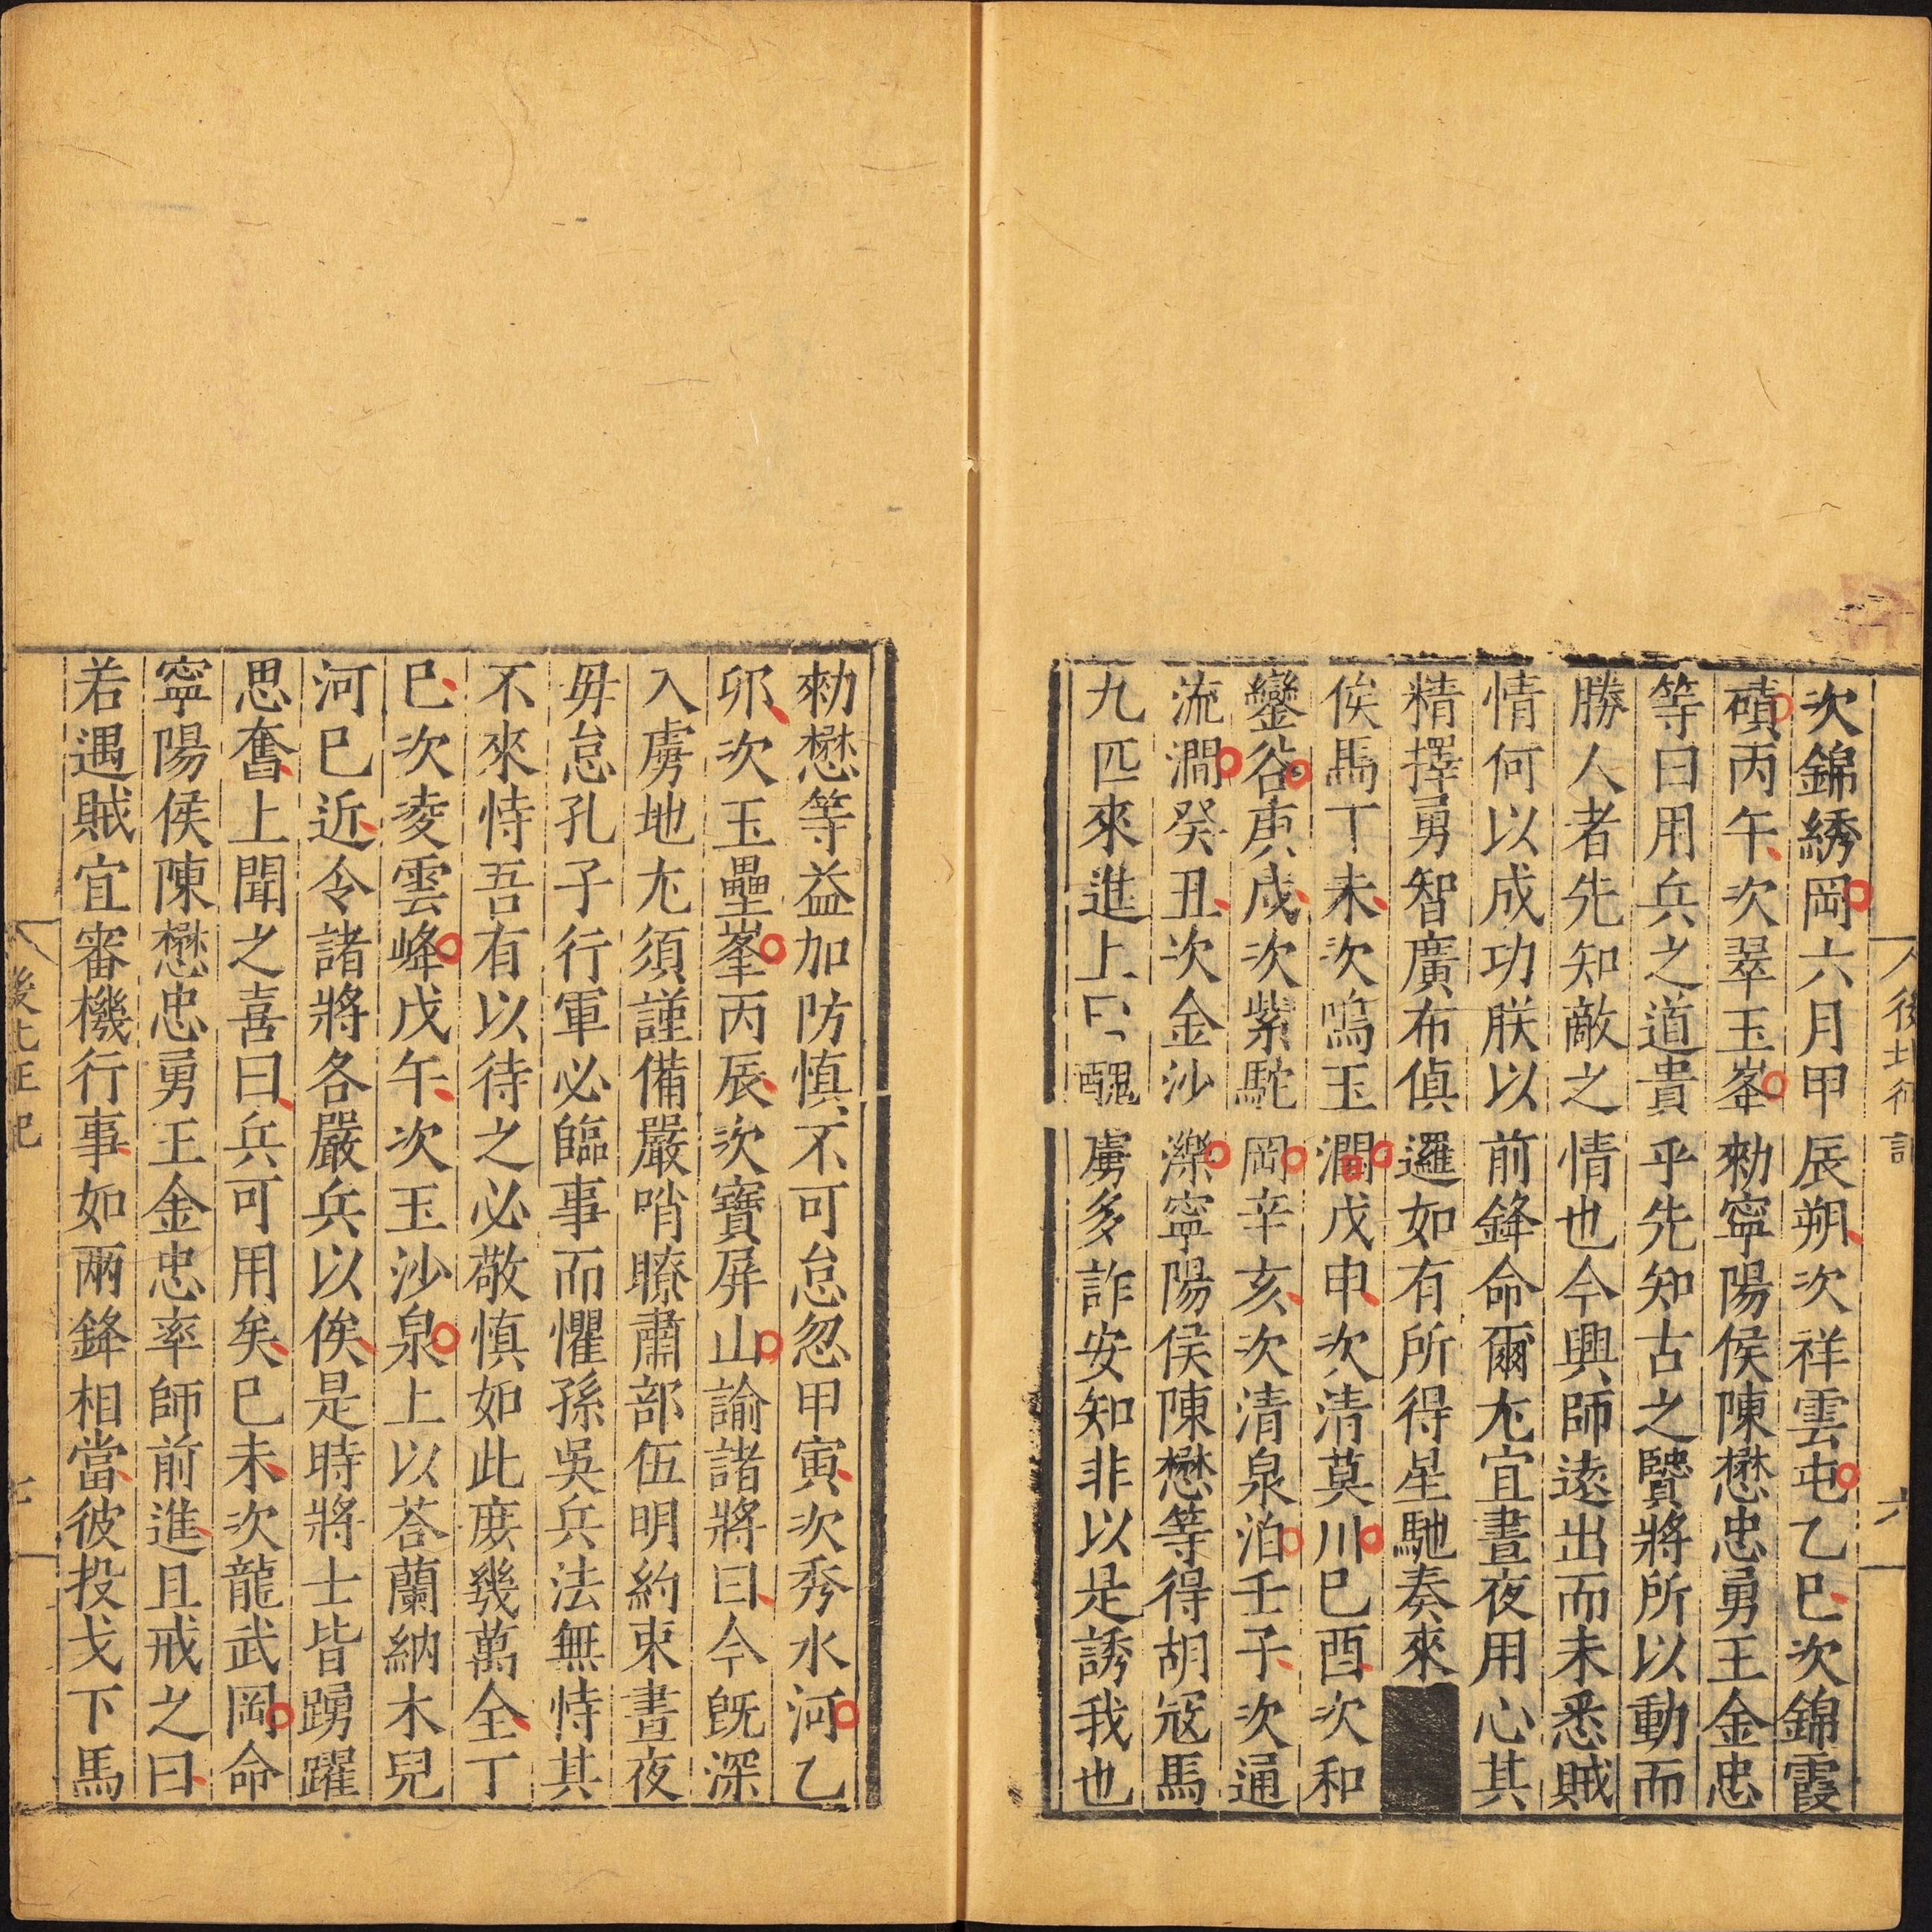 後北征記
六
次錦綉岡六月甲辰朔次祥雲屯乙巳次錦霞
磧丙午次翠玉峯勑寧陽侯陳懋忠勇王金忠
等曰用兵之道貴乎先知古之賢將所以動而
勝人者先知敵之情也今興師遠出而未悉賊
情何以成功朕以前鋒命爾尢宜晝夜用心其
精擇勇智廣布偵邏如有所得星馳奏來
俟馬丁未次嗚玉澗戊申次清莫川巳酉次和
鑾谷庚戌次紫駝岡辛亥次清泉泊壬子次通
流澗癸丑次金沙濼寧陽侯陳懋等得胡冦馬
九匹來進上曰醜虜多詐安知非以是誘我也
勑懋等益加防慎不可怠忽甲寅次秀水河乙
卯次玉壘峯丙辰次寶屏山諭諸將曰今既深
入虜地尢須謹備嚴哨瞭肅部伍明約束晝夜
毋怠孔子行軍必臨事而懼孫吳兵法無恃其
不來恃吾有以待之必敬慎如此庶幾萬全丁
巳次夌雲峰戊午次玉沙泉上以荅蘭納木兒
河巳近令諸將各嚴兵以俟是時將士皆踴躍
思奮上聞之喜曰兵可用矣巳未次龍武岡命
寧陽侯陳懋忠勇王金忠率師前進且戒之曰
若遇賊宜審機行事如兩鋒相當彼投戈下馬
後北征記
七